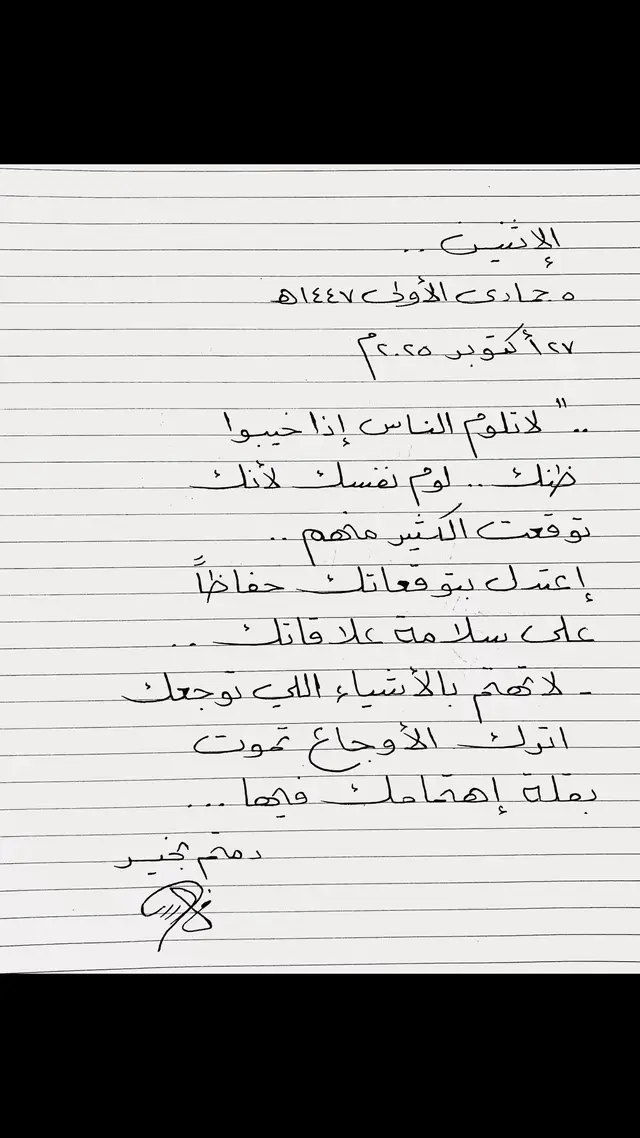 الإثنين ..
٥ جمادى الأولى ١٤٤٧هـ
٢٧ أكتوبر ٢٠٢٥م
.." لاتلوم الناس إذا خيبوا
ظنك .. لوم نفسك لأنك
توقعت الكثير منهم ..
إعتدل بتوقعاتك حفاظاً
على سلامة علاقاتك ..
- لاتهتم بالأشياء اللي توجعك
اترك الأوجاع تموت
بقلة إهتمامك فيها ...
دمتم بخير